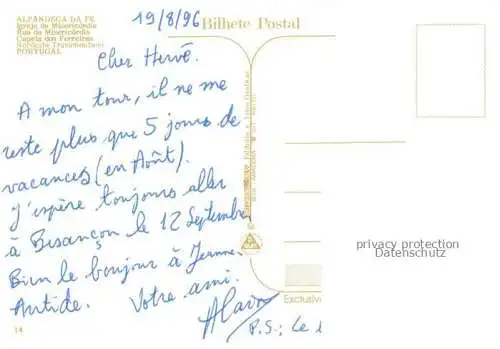 ALFANDEGA DA FÉ
Igreja de Misericórdia
Rua da Misericórdia
Capela dos Ferreiras
Nordeste Transmontano
PORTUGAL
Bilhete Postal
19/8/96
Cher Hervé.
A mon tour, il ne me
reste plus que 5 jours de
vacances (en Août).
J'espère toujours aller
à Besançon le 12 Septembre
Bien le bonjour à Jeanne-
Antide. Votre ami.
Alain
P.S: Ce
14
Exclusivo
privacy protection
Datenschutz